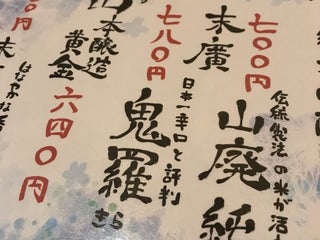 七〇〇円
伝統製法の米が活
末廣
山廃純
七八〇円
日本一辛口と評判
鬼羅
きら
本醸造
黄金
六四〇円
はなやかな